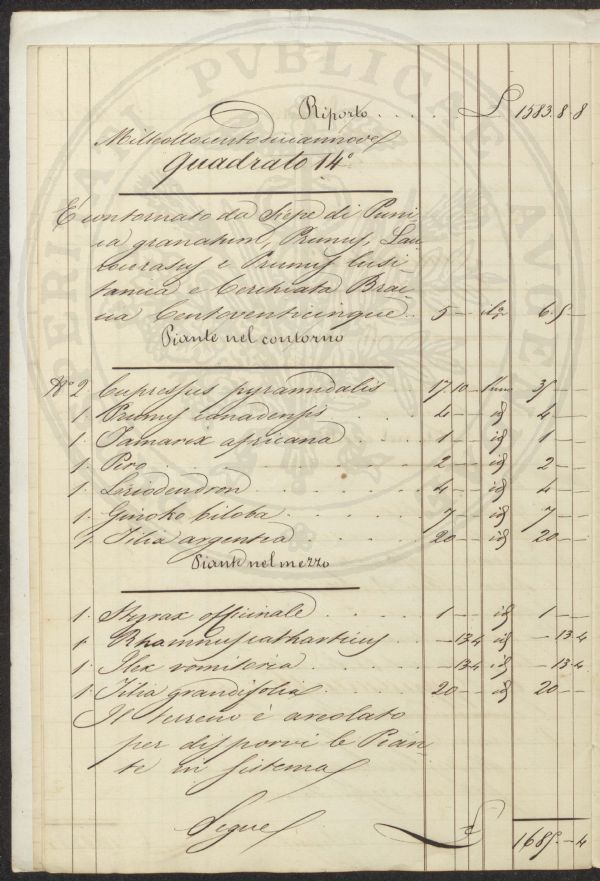 Riporto . . . . . £ 1583. 8. 8
Milleottocentodiciannove
Quadrato 14°
È contornato da Siepe di Puni
ca granatum, Prunus, Lau
rocerasus e Prunus lusi
tanica e Cerchiata Brac
cia Centoventicinque . 5 - - il % 6. 5. -
Piante nel contorno
N° 2 Cupressus pyramidalis 17. 10 - l'uno 35 - -
1. Prunus canadensis . . 4 - - id 4 - -
1. Tamarix africana . . 1 - - id 1 - -
1. Piro . . . . . 2 - - id 2 - -
1. Liriodendron . . . . 4 - - id 4 - -
1. Ginoko biloba . . . 7 - - id 7 - -
1. Tilia argentea . . . 20 - - id 20 - -
Piante nel mezzo
1. Styrax officinale . . . 1 - - id 1 - -
1. Rhamnus catharticus . . - 13. 4 id - 13. 4
1. Ilex vomitoria . . . - 13. 4 id - 13. 4
1. Tilia grandifolia . . . 20 - - id 20 - -
Il terreno è areolato
per disporvi le Pian
te in sistema
Segue £ 1685. - 4